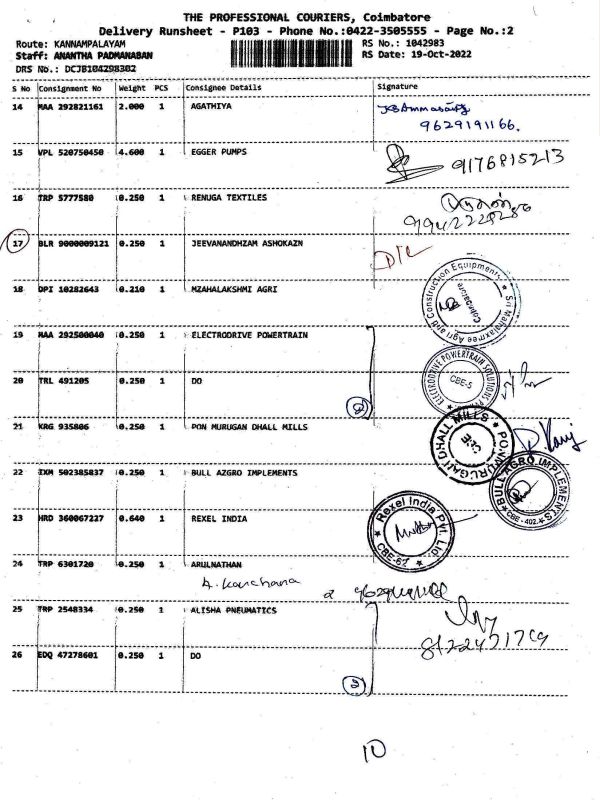 THE PROFESSIONAL COURIERS, Coimbatore
Delivery Runsheet - P103 - Phone No.:0422-3505555 - Page No.:2
Route: KANNAMPALAYAM RS No.: 1042983
Staff: ANANTHA PADMANABAN RS Date: 19-Oct-2022
DRS No.: DCJB104298302
S No Consignment No Weight PCS Consignee Details Signature
14 MAA 292821161 2.000 1 AGATHIYA
9629191166.
15 VPL 520750450 4.600 1 EGGER PUMPS
9176815213
16 TRP 5777580 0.250 1 RENUGA TEXTILES
17 BLR 9000009121 0.250 1 JEEVANANDHZAM ASHOKAZN
D/L
18 DPI 10282643 0.210 1 MZAHALAKSHMI AGRI
Sri Mahalaxmee Agri and Construction Equipments
Coimbatore
19 MAA 292500040 0.250 1 ELECTRODRIVE POWERTRAIN
ELECTRODRIVE POWERTRAIN SOLUTIONS
CBE-5
20 TRL 491205 0.250 1 DO
2
21 KRG 935806 0.250 1 PON MURUGAN DHALL MILLS
PON MURUGAN DHALL MILLS
22 IXM 502385837 0.250 1 BULL AZGRO IMPLEMENTS
BULL AGRO IMPLEMENTS
CBE - 402.
23 HRD 360067227 0.640 1 REXEL INDIA
Rexel India Pvt. Ltd.
CBE-62
24 TRP 6301720 0.250 1 ARULNATHAN
A. Kanchana
25 TRP 2548334 0.250 1 ALISHA PNEUMATICS
26 EDQ 47278601 0.250 1 DO
2
10